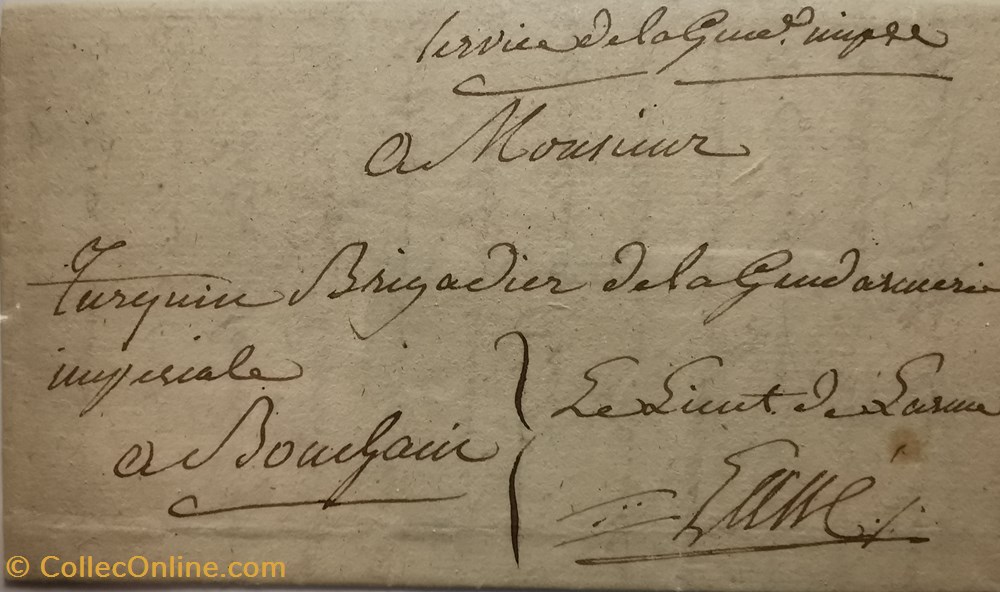 Service de la Gme.d impale
a Monsieur
Turquin Brigadier de la Gendarmerie
impériale
a Bouchain
Le Lieut. de L'arme
© CollecOnline.com